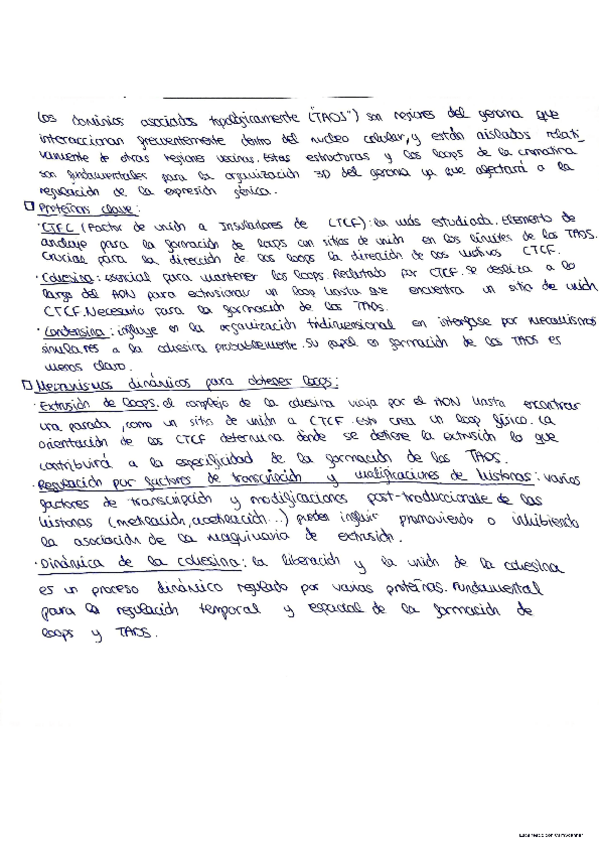 Los dominios asociados topológicamente ("TADS") son regiones del genoma que
interaccionan frecuentemente dentro del nucleo celular, y están aislados relati_
vamente de otras regiones vecinas. Estas estructuras y los loops de la cromatina
son fundamentales para la organización 3D del genoma ya que afectará a la
regulación de la expresión génica.
Proteínas clave:
· CTFC (Factor de unión a Insuladores de CTCF): la más estudiada. Elemento de
anclaje para la formación de loops con sitios de unión en los límites de los TADS.
Crucial para la dirección de los loops la dirección de los motivos CTCF.
· Cohesina: esencial para mantener los loops. Reclutado por CTCF. Se desliza a lo
largo del ADN para extrusionar un loop hasta que encuentra un sitio de unión
CTCF. Necesario para la formación de los TADS.
· Condensina: influye en la organización tridimensional en interfase por mecanismos
similares a la cohesina probablemente. Su papel en formación de los TADS es
menos claro.
Mecanismos dinámicos para obtener loops:
· Extrusión de loops. el complejo de la cohesina viaja por el ADN hasta encontrar
una parada, como un sitio de unión a CTCF. Esto crea un loop físico. La
orientación de los CTCF determina donde se detiene la extrusión lo que
contribuirá a la especificidad de la formación de los TADS.
· Regulación por factores de transcripción y modificaciones de histonas: varios
factores de transcripción y modificaciones post-traduccionale de las
histonas (metilación, acetilación...) pueden influir promoviendo o inhibiendo
la asociación de la maquinaria de extrusión.
· Dinámica de la cohesina: la liberación y la unión de la cohesina
es un proceso dinámico regulado por varias proteínas. Fundamental
para la regulación temporal y espacial de la formación de
loops y TADS.